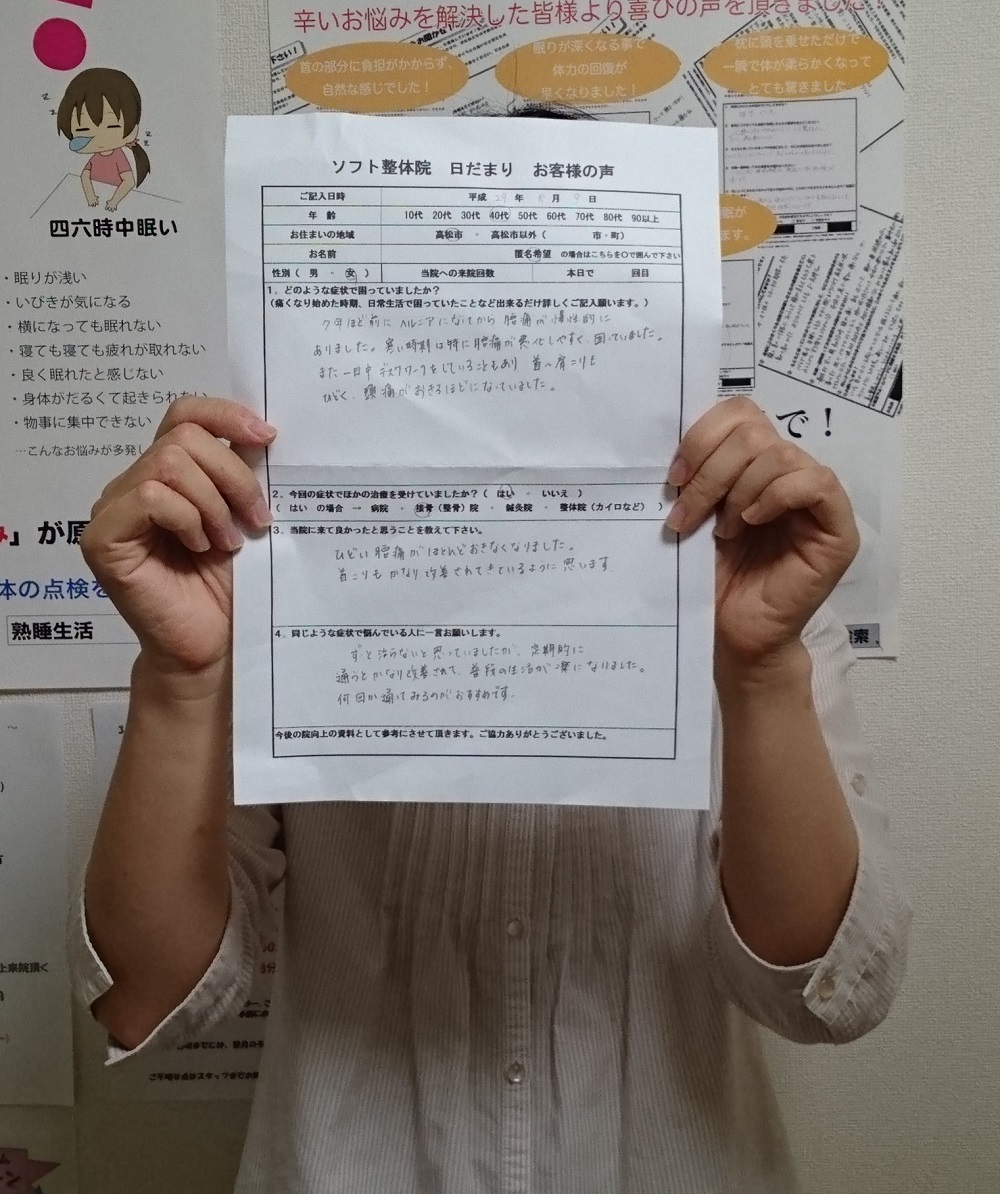 辛いお悩みを解決した皆様より喜びの声を頂きました！
首の部分に負担がかからず、
自然な感じでした！
眠りが深くなる事で
体力の回復が
早くなりました！
枕に頭を乗せただけで
一瞬で体が柔らかくなって
とても驚きました
四六時中眠い
・眠りが浅い
・いびきが気になる
・横になっても眠れない
・寝ても寝ても疲れが取れない
・良く眠れたと感じない
・身体がだるくて起きられない
・物事に集中できない
…こんなお悩みが多発し
」が原
体の点検を
熟睡生活
検索
で！
ソフト整体院 日だまり お客様の声
ご記入日時 平成 29 年 5 月 9 日
年 齢 10代 20代 30代 40代 50代 60代 70代 80代 90以上
お住まいの地域 高松市 ・ 高松市以外（ 市・町）
お名前 匿名希望 の場合はこちらを〇で囲んで下さい
性別（ 男 ・ 女 ） 当院への来院回数 本日で 回目
1．どのような症状で困っていましたか？
（痛くなり始めた時期、日常生活で困っていたことなど出来るだけ詳しくご記入願います。）
7年ほど前に ヘルニアになってから 腰痛が慢性的に
ありました。寒い時期は特に腰痛が悪化しやすく、困っていました。
また一日中 デスクワークをしていることもあり 首へ肩こりも
ひどく、頭痛がおきるほどになっていました。
2．今回の症状でほかの治療を受けていましたか？（ はい ・ いいえ ）
（ はい の場合 → 病院 ・ 接骨（整骨）院 ・ 鍼灸院 ・ 整体院（カイロなど） ）
3．当院に来て良かったと思うことを教えて下さい。
ひどい腰痛がほとんどおきなくなりました。
首こりもかなり改善されてきているように思います
4．同じような症状で悩んでいる人に一言お願いします。
ずっと治らないと思っていましたが、定期的に
通うとかなり改善されて、普段の生活が楽になりました。
何回か通ってみるのがおすすめです。
今後の院向上の資料として参考にさせて頂きます。ご協力ありがとうございました。